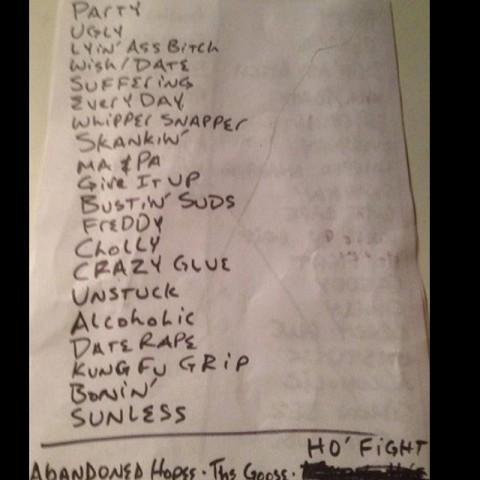 PARTY
UGLY
LYIN' ASS BITCH
WISH/DATE
SUFFERING
EVERYDAY
WHIPPER SNAPPER
SKANKIN'
MA & PA
GIVE IT UP
BUSTIN' SUDS
FREDDY
CHOLLY
CRAZY GLUE
UNSTUCK
ALCOHOLIC
DATE RAPE
KUNG FU GRIP
BONIN'
SUNLESS
HO' FIGHT
ABANDONED HOPES · THE GOOSE ·